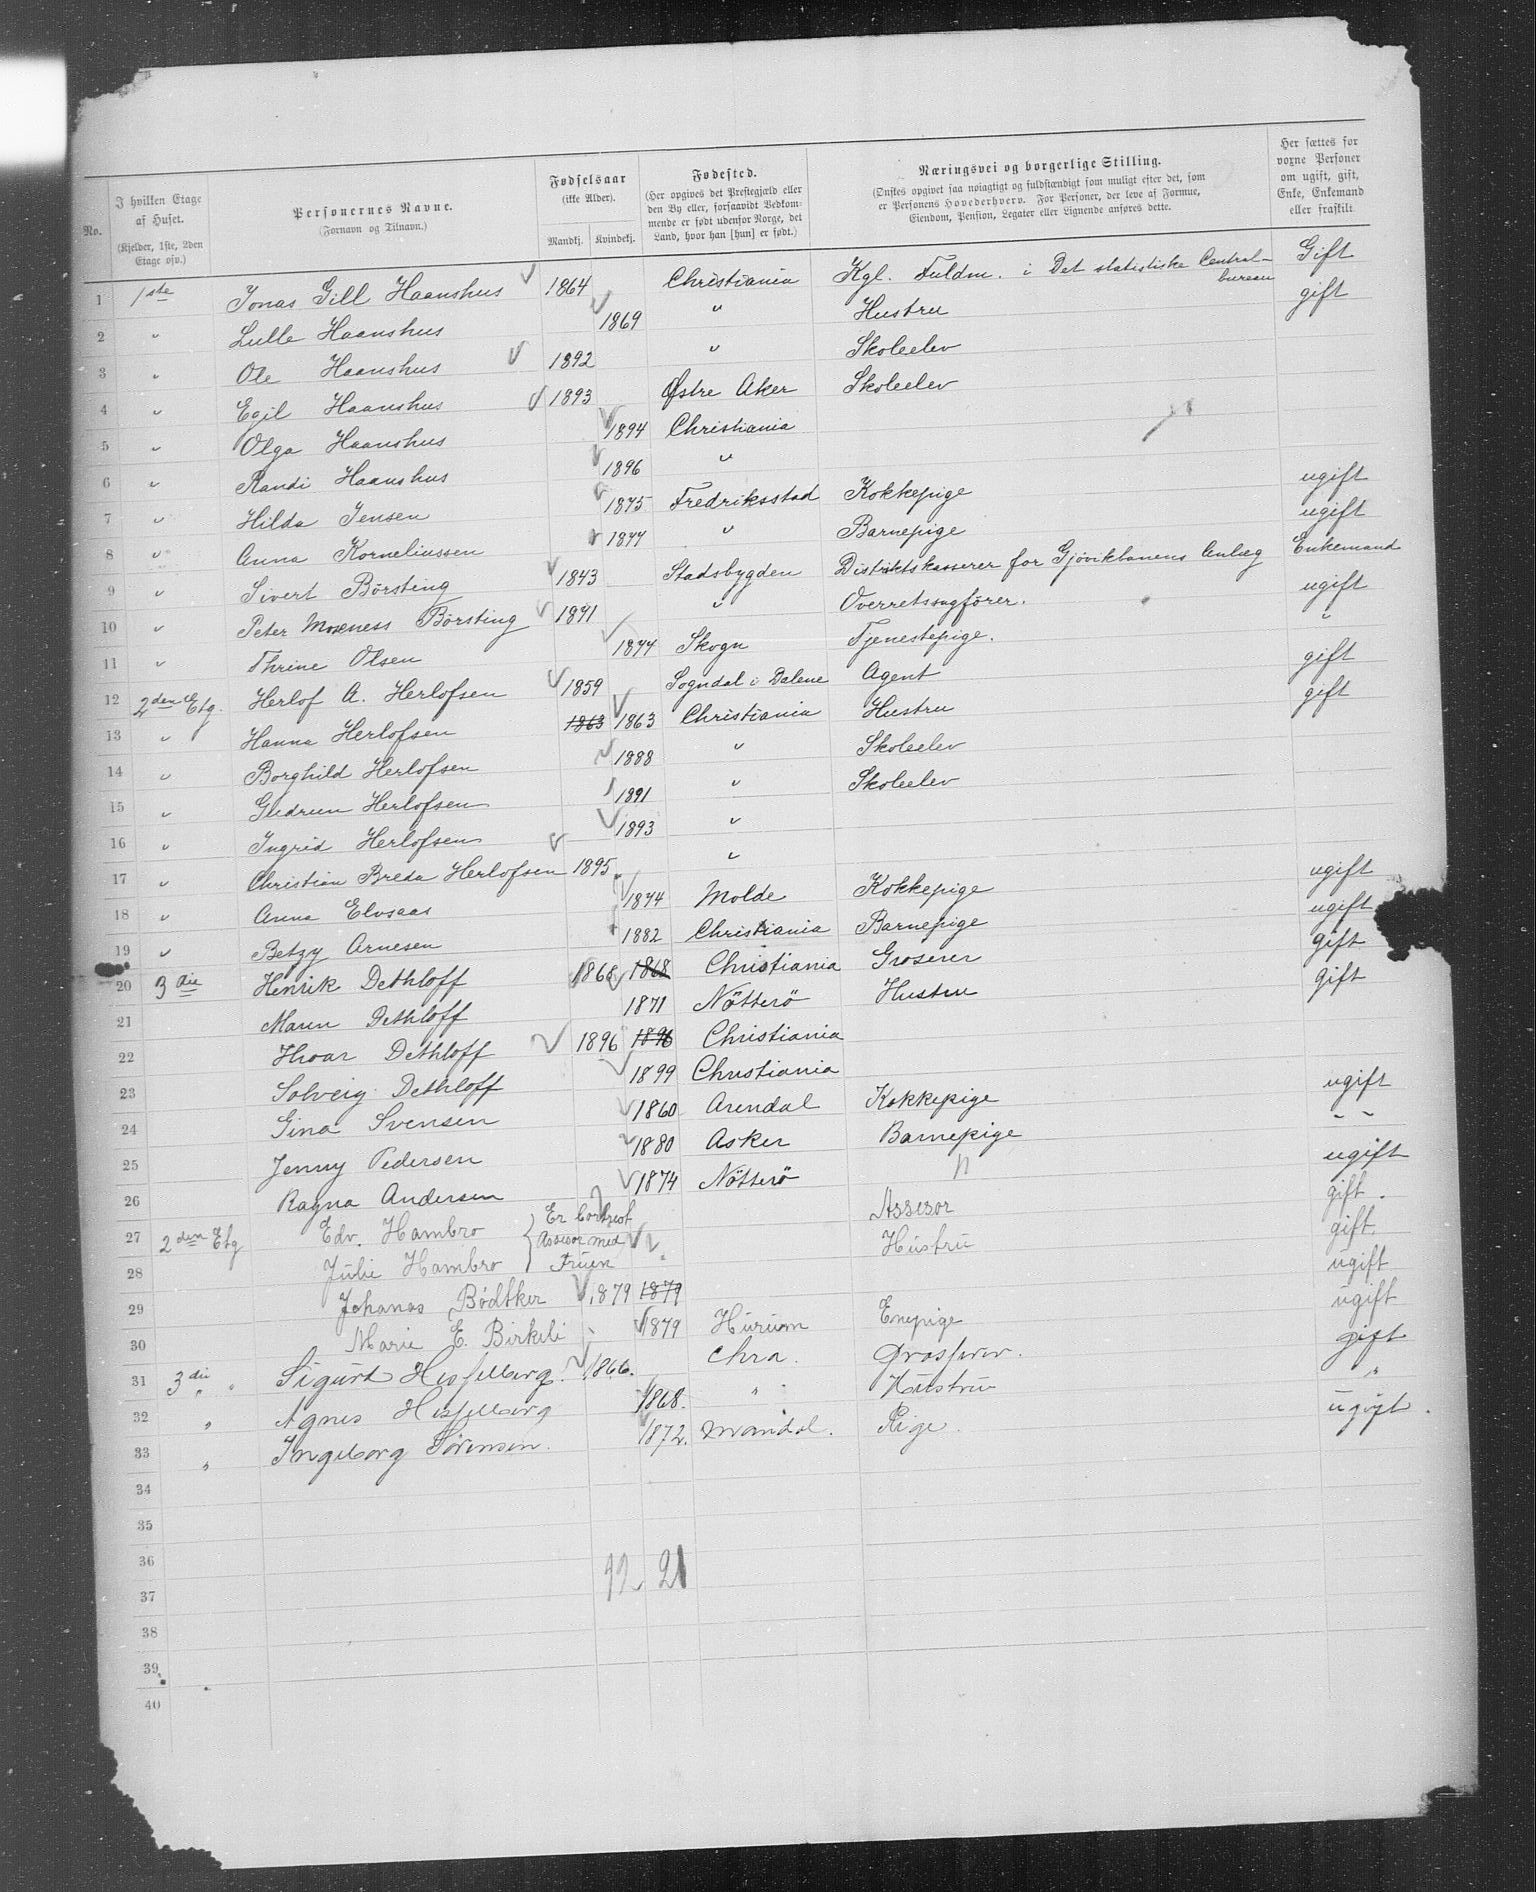 No. | I hvilken Etage af Huset. (Kjelder, 1ste, 2den Etage osv.) | Personernes Navne. (Fornavn og Tilnavn.) | Fødselsaar (ikke Alder). Mandkj. Kvindekj. | Fødested. (Her opgives det Prestegjæld eller den By eller, forsaavidt Vedkommende er født udenfor Norge, det Land, hvor han [hun] er født.) | Næringsvei og borgerlige Stilling. (Ønskes opgivet saa nøiagtigt og fuldstændigt som muligt efter det, som er Personens Hovederhverv. For Personer, der leve af Formue, Eiendom, Pension, Legater eller Lignende anføres dette. | Her sættes for voxne Personer om ugift, gift, Enke, Enkemand eller fraskilt.
1 1ste Jonas Gill Haanshus 1864 Christiania Kgl. Fuldm. i Det statistiske Central-bureau Gift
2 " Lulle Haanshus 1869 " Hustru gift
3 " Ole Haanshus 1892 " Skoleelev
4 " Egil Haanshus 1893 Østre Aker Skoleelev
5 " Olga Haanshus 1894 Christiania
6 " Randi Haanshus 1896 "
7 " Hilda Jensen 1875 Fredriksstad Kokkepige ugift
8 " Anna Korneliussen 1877 " Barnepige ugift
9 " Sivert Børsting 1843 Stadsbygden Distriktskasserer for Gjøvikbanens Anlæg Enkemand
10 " Peter Børsting 1871 " Overretssagfører. ugift
11 " Thrine Olsen 1874 Skogn Tjenestepige. "
12 2den Etg. Herlof A. Herlofsen 1859 Sogndal i Dalene Agent gift
13 " Hanna Herlofsen 1863 1863 Christiania Hustru gift
14 " Borghild Herlofsen 1888 " Skoleelev
15 " Gudrun Herlofsen 1891 " Skoleelev
16 " Ingrid Herlofsen 1893 "
17 " Christian Breda Herlofsen 1895 "
18 " Anna Elvsaas 1874 Molde Kokkepige ugift
19 " Betzy Arnesen 1882 Christiania Barnepige ugift
20 3die Henrik Dethloff 1868 1868 Christiania Groserer gift
21 Maren Dethloff 1871 Nötterö Hustru gift
22 Hroar Dethloff 1896 1896 Christiania
23 Solveig Dethloff 1899 Christiania
24 Gina Svensen 1860 Arendal Kokkepige ugift
25 Jenny Pedersen 1880 Asker Barnepige - -
26 Ragna Andersen 1874 Nötterö " ugift
27 2den Etg Edv. Hambro Er bortreist Assesor med Fruen Assesor gift.
28 Julie Hambro Hustru gift.
29 Johanas Bödtker 1879 1879 ugift
30 Marie E. Birkeli 1879 Hurum Enepige ugift
31 3die " Sigurd Hesselberg. 1866. Chra. Grosserer. gift
32 " Agnes Hesselberg 1868. " Hustru "
33 " Ingeborg Sörensen. 1872. Mandal. Pige. ugift.
34
35
36
12 21
37
38
39
40